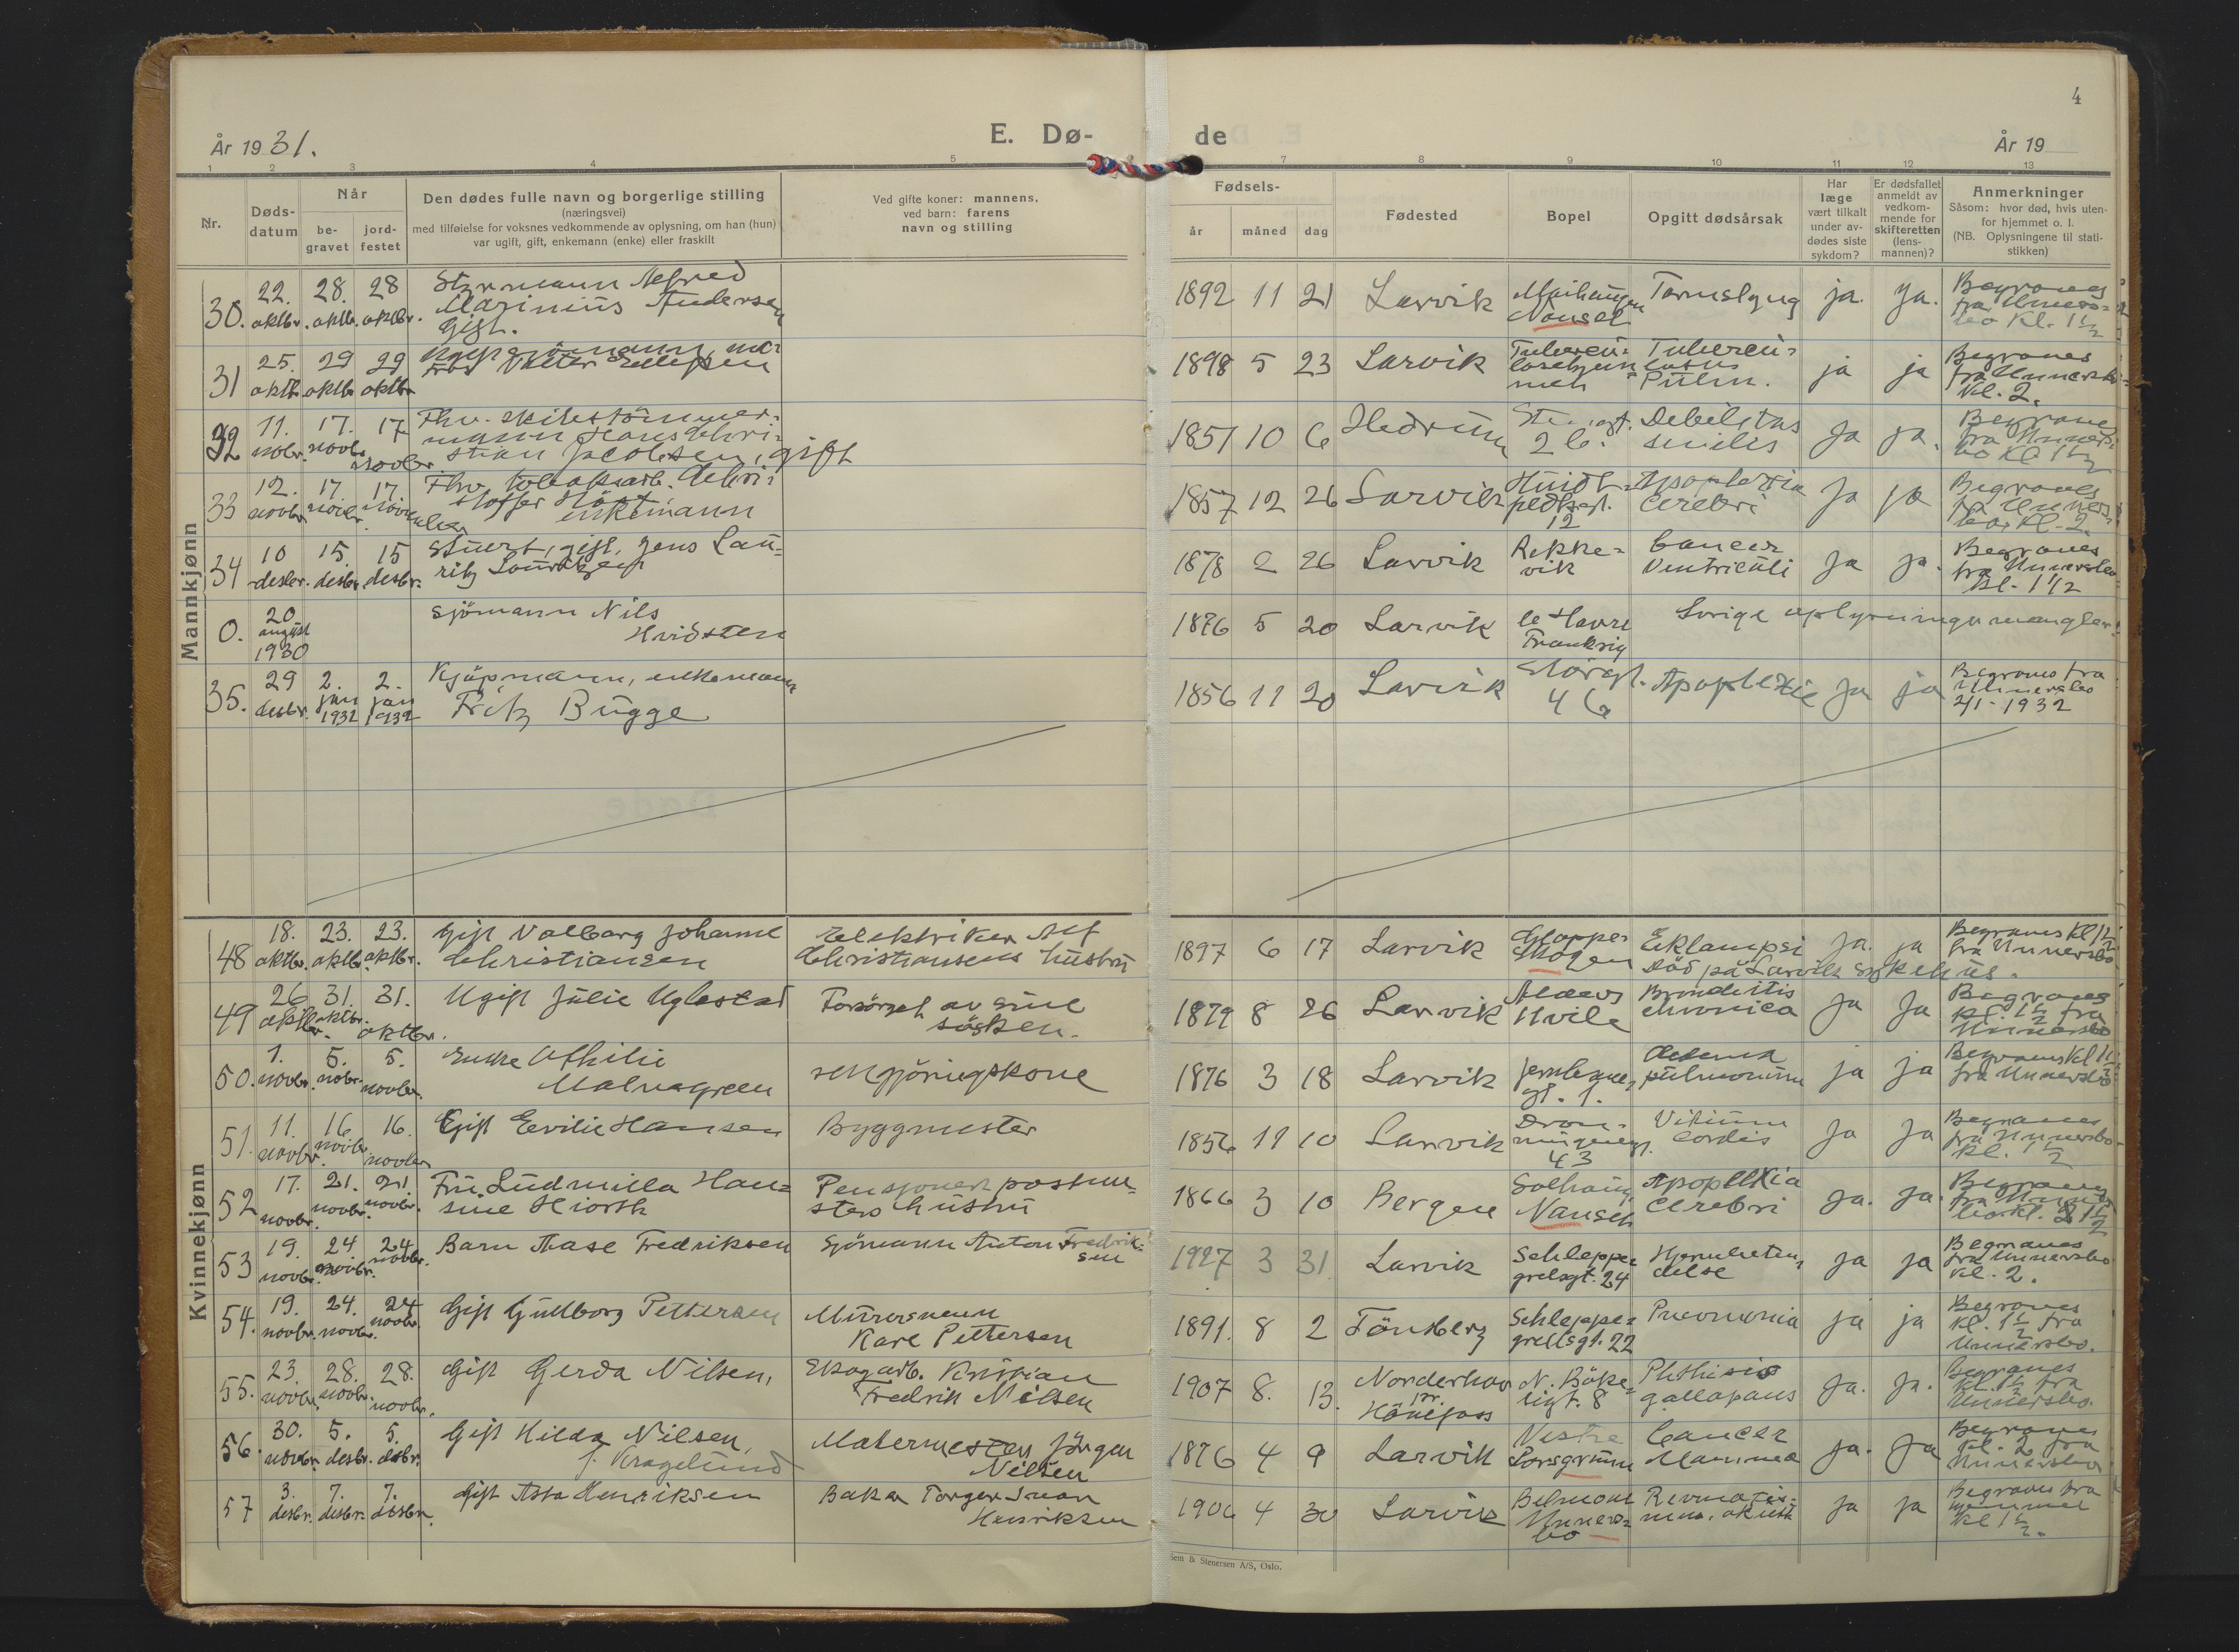 4
År 1931.
E. Dø-
de
År 19
1 2 3 4 5 7 8 9 10 11 12 13
Nr.
Døds-
datum
Når
be-
gravet
jord-
festet
Den dødes fulle navn og borgerlige stilling
(næringsvei)
med tilføielse for voksnes vedkommende av oplysning, om han (hun)
var ugift, gift, enkemann (enke) eller fraskilt
Ved gifte koner: mannens,
ved barn: farens
navn og stilling
Fødsels-
år
måned
dag
Fødested
Bopel
Opgitt dødsårsak
Har
læge
vært tilkalt
under av-
dødes siste
sykdom?
Er dødsfallet
anmeldt av
vedkom-
mende for
skifteretten
(lens-
mannen)?
Anmerkninger
Såsom: hvor død, hvis uten-
for hjemmet o. l.
(NB. Oplysningene til stati-
stikken)
Mannkjønn
30. 22. oktbr. 28. oktbr. 28 oktbr.
Styrmann Alfred
Marinius Andersen
Gift.
1892 11 21 Larvik
Nanset
ja. ja.
Begraves
fra Unners-
bo Kl. 1 1/2
31 25. oktb 29 oktbr 29 oktbr
Valter Ellefsen
1898 5 23 Larvik
Tubercu-
losehjem-
met
Tubercu-
losis
Pulm.
ja ja
Begraves
fra Unnersbo
Kl. 2.
32 11. nobr. 17. novbr. 17 novbr.
Fhv. skibstömmer-
mann Hans Chri-
stian Jacobsen, gift
1851 10 6 Hedrum
26.
Debilitas
senilis
ja ja.
Begraves
fra Unners-
bo Kl 1 1/2
33 12. novbr. 17. novbr. 17. november
Fhv. tobaksarb. Chri-
stoffer Höst,
enkemann
1857 12 26 Larvik
12
Apoplexia
Cerebri
ja ja
Begraves
fra Unners-
bo. Kl. 2.
34 10 desbr. 15. desbr. 15 desbr.
Stuert, gift, Jens Lau-
ritz Lauritzen
1878 2 26 Larvik
Rekke-
vik
Cancer
Ventriculi
ja ja.
Begraves
fra Unnersbo
Kl. 1 1/2
0. 20 august 1930
Sjömann Nils
Hvidsten
1876 5 20 Larvik
le Havre
Frankrig
övrige oplysninger mangler.
35. 29 desbr. 2. jan 1932 2. jan 1932
Kjöpmann, enkemann
Fritz Bugge
1856 11 20 Larvik
Storgt.
46
Apoplexie
ja ja
Begraves fra
Unnersbo
2/1-1932
Kvinnekjønn
48 18. oktbr. 23. oktbr. 23. oktbr.
Gift Valborg Johanne
Christiansen
Elektriker Alf
Christiansens hustru
1897 6 17 Larvik
Gloppe-
skogen
Eklampsi
Död på Larvik sykehus.
ja. ja
Begraves Kl 1 1/2
fra Unnersbo
49 26 oktbr. 31. oktbr. 31. oktbr.
Ugift Julie Uglestad
Forsörget av sine
søsken.
1879 8 26 Larvik
Hvile
Bronchitis
chronica
ja ja
Begraves
Kl. 1 1/2 fra
Unnersbo
50. 1. novbr. 5. nobr. 5. novbr.
Enke Othilie
Malmgreen
rengjöringskone
1876 3 18 Larvik
Jernbane-
gt. 1.
Oedema
pulmonum
ja ja
Begraves Kl 1 1/2
fra Unnersbo
51. 11. novbr. 16 novbr. 16. novbr.
Gift Evilie Hansen
Byggmester
1856 11 10 Larvik
Dron-
ningensgt.
43
Vitium
cordis
ja ja
Begraves
fra Unnersbo
Kl. 1 1/2
52 17. novbr. 21. novbr. 21. novbr.
Fru Ludmilla Han-
sine Hiorth
Pensjonert postme-
sters hustru
1866 3 10 Bergen
Solhaug,
Nanset
Apoplexia
Cerebri
ja. ja.
Begraves
fra Unners-
bo kl. 1 1/2
53 19. novbr. 24. novbr. 24 novbr.
Barn Aase Fredriksen
Sjömann Anton Fredrik-
sen
1927 3 31 Larvik
Schleppe-
grelsgt. 24
Hjernebeten-
delse
ja ja
Begraves
fra Unnersbo
Kl. 2.
54. 19. novbr. 24. novbr. 24 novbr.
Gift Gullborg Pettersen
Murersvenn
Kare Pettersen
1891. 8 2 Tönsberg
Schleppe-
grellsgt. 22
Pneumonia
ja ja
Begraves
Kl. 1 1/2 fra
Unnersbo.
55. 23. novbr. 28. novbr. 28. novbr.
Gift Gerda Nilsen,
Skogarb. Kristian
Fredrik Nilsen
1907 8. 13.
Norderhov
pr.
Hönefoss
N. Böke-
ligt. 8
Phthisis
gallopans
ja. ja.
Begraves
Kl. 1 1/2 fra
Unnersbo.
56. 30. novbr. 5. desbr. 5. desbr.
Gift Hilda Nilsen,
f. Kragelund
Malermester Jörgen
Nilsen
1876 4 9 Larvik
Vestre
Torsgrunn
Cancer
Mamma
ja. ja
Begraves
Kl. 2 fra
Unnersbo
57 3. desbr. 7. desbr. 7. desbr.
Gift Asta Henriksen
Baker Torger Ivar
Henriksen
1906 4 30 Larvik
Belmont
Unners-
bo
Revmatis-
mus, akutt
ja ja
Begraves fra
hjemmet
kl 1 1/2.
Sem & Stenersen A/S, Oslo.